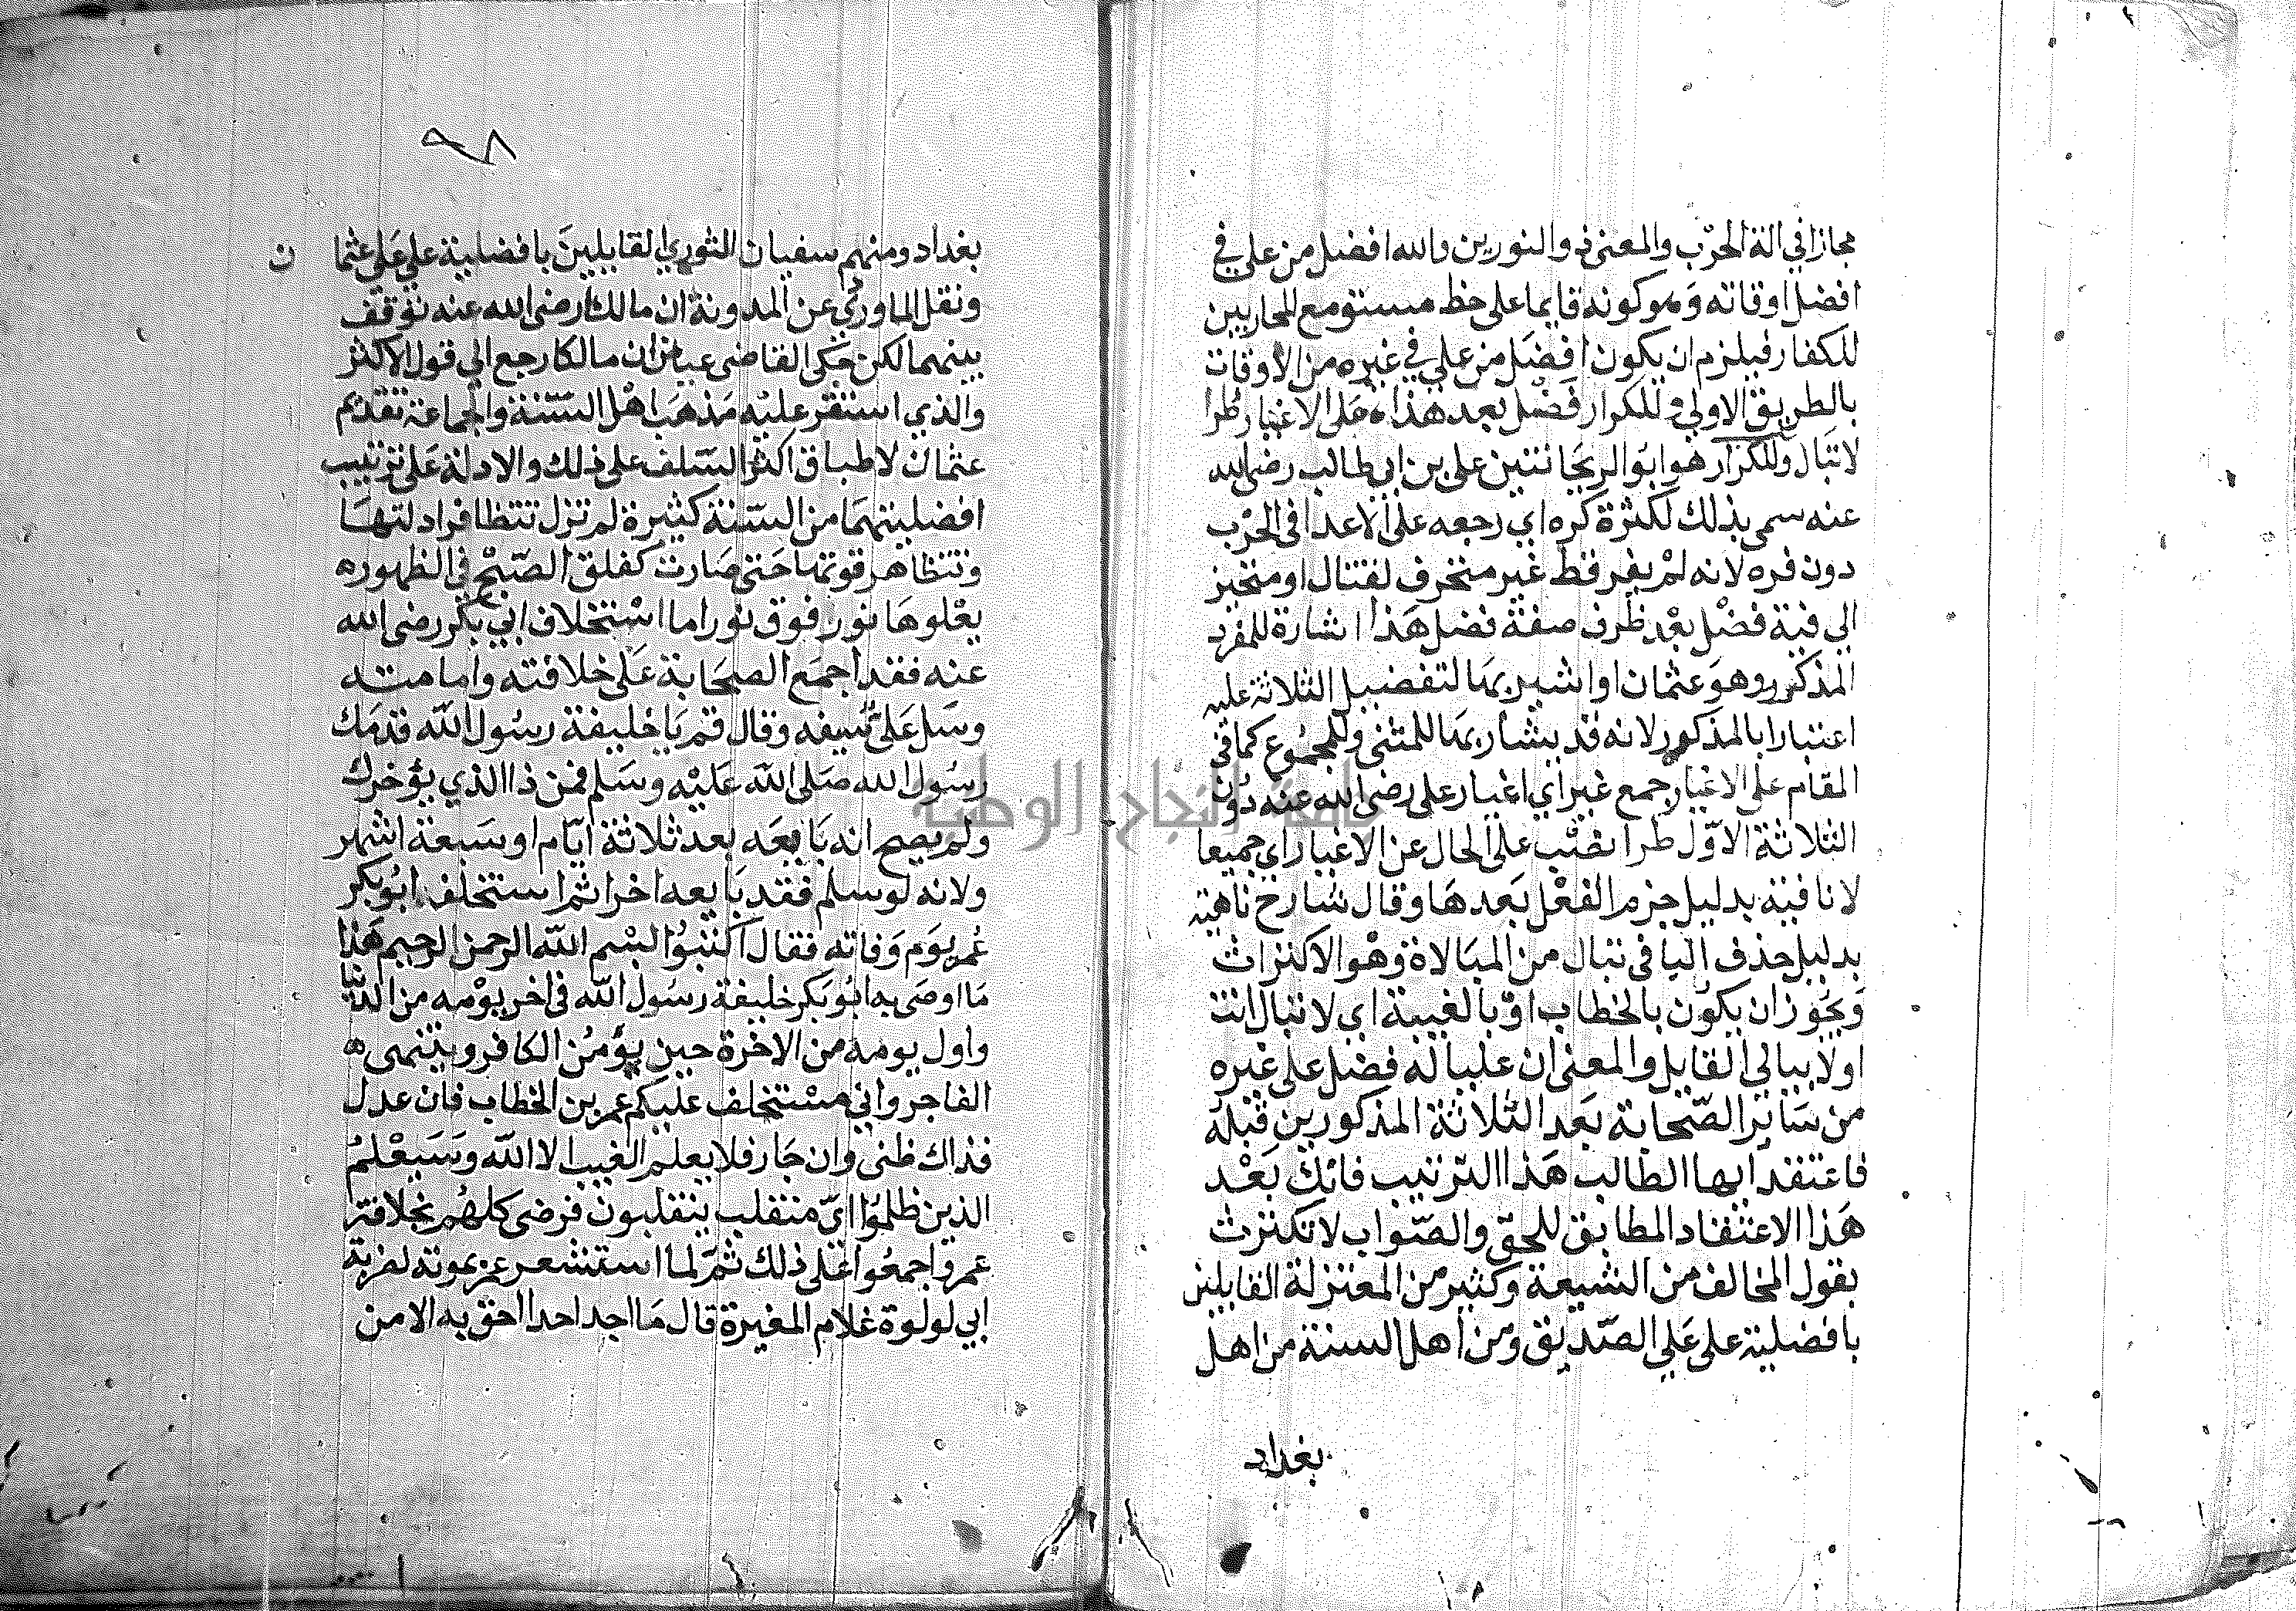 مجازا في الة الحرب والمعنى ذو النورين والله افضل من علي في
افضل اوقاته وهو كونه قايما على خط مستو مع المحاربين
للكفار فيلزم ان يكون افضل من علي في غيره من الاوقات
بالطريق الاولى وللكرار فضل بعد هذا ه على الاغيار طرا
لا تبال وللكرار هو ابو الريحانتين علي بن ابي طالب رضى الله
عنه سمى بذلك لكثرة كره اي رجعه على الاعدا في الحرب
دون فره لانه لم يفر قط غير متحرف لقتال او متحيز
الي فية فضل بعد ظرف صفة فضل هذا اشارة للمفرد
المذكور وهو عثمان او اشير بها لتفضيل الثلاثة عليه
اعتبارا بالمذكور لانه قد يشار بها للمثنى وللمجموع كما في
المقام على الاغيار جمع غير اي اغيار على رضى الله عنه دون
الثلاثة الاوّل طرا نصب على الحال عن الاغيار اي جميعا
لا نافية بدليل جزم الفعل بعدها وقال شارح ناهية
بدليل حذف اليا في تبال من المبالاة وهو الاكتراث
ويجوز ان يكون بالخطاب او بالغيبة اي لا تبال انت
او لا يبالي القايل والمعنى ان عليا له فضل على غيره
من ساير الصحابة بعد الثلاثة المذكورين قبله
فاعتقد ايها الطالب هذا الترتيب فانك بعد
هذا الاعتقاد المطابق للحق والصواب لا تكترث
بقول المخالف من الشيعة وكثير من المعتزلة القايلين
بافضلية على علي الصديق ومن اهل السنة من اهل
بغداد
٩٨
بغداد ومنهم سفيان الثوري القايلين بافضلية علي على عثمان
ونقل الماوري عن المدونة ان مالك رضى الله عنه توقف
بينهما لكن حكى القاضى عياض ان مالكا رجع الي قول الاكثر
والذي استقر عليه مذهب اهل السنة والجماعة تقديم
عثمان لاطباق اكثر السلف على ذلك والادلة على ترتيب
افضليتهما من السنة كثيرة لم تزل تتظافر ادلتها
وتتظاهر قوتها حتى صارت كفلق الصبح في الظهور ه
يعلوها نور فوق نور اما استخلاف ابي بكر رضى الله
عنه فقد اجمع الصحابة على خلافته وامامته
وسل علىّ سيفه وقال قم يا خليفة رسول الله قدمك
رسول الله صلى الله عليه وسلم فمن ذا الذي يؤخرك
ولم يصح انه بايعه بعد ثلاثة ايّام او سبعة اشهر
ولانه لو سلم فقد بايعه اخرا ثم استخلف ابو بكر
عمر يوم وفاته فقال اكتبوا بسم الله الرحمن الرحيم هذا
ما اوصى به ابو بكر خليفة رسول الله في اخر يومه من الدنيا
واول يومه من الاخرة حين يؤمن الكافر وينتهى ه
الفاجر واني مستخلف عليكم عمر بن الخطاب فان عدل
فذاك ظنى وان جار فلا يعلم الغيب الا الله وسيعلم
الذين ظلموا اىّ منقلب ينقلبون فرضى كلهم بخلافة
عمر واجمعوا على ذلك ثم لما استشعر عمر بموته لضربة
ابي لولوة غلام المغيرة قال ما اجد احدا احق به الا من
جامعة النجاح الوطنية